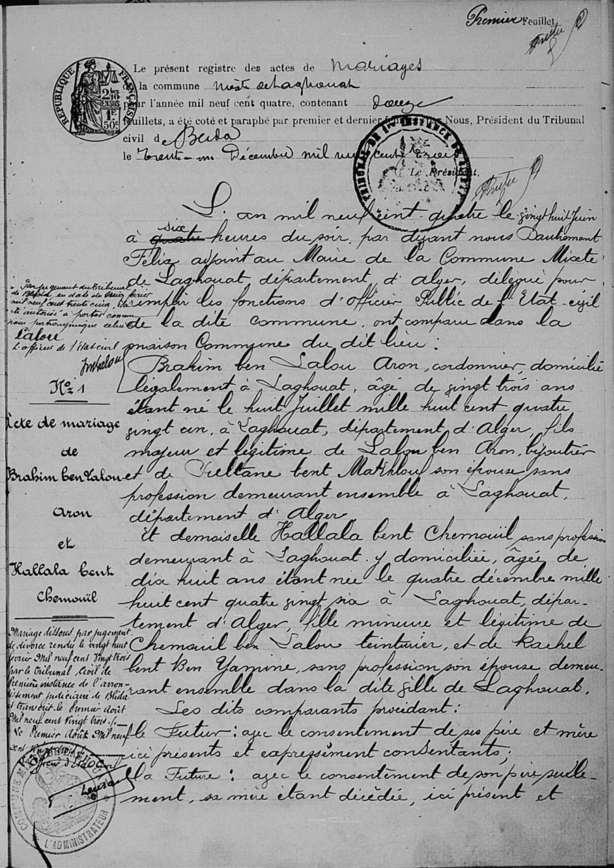 Premier Feuillet.
RÉPUBLIQUE FRANÇAISE
Le présent registre des actes de Mariages
de la commune mixte de Laghouat
pour l'année mil neuf cent quatre, contenant douze
feuillets, a été coté et paraphé par premier et dernier Nous, Président du Tribunal
civil de Blida
le trente-un Décembre mil neuf cent trois
Le Président,
TRIBUNAL DE 1re INSTANCE DE
L'an mil neuf cent quatre le vingt huit Juin
à six quatre heures du soir, par devant nous Dauhomont
Félix adjoint au Maire de la Commune Mixte
de Laghouat, département d'Alger, délégué pour
remplir les fonctions d'officier Public de l'Etat-civil
de la dite commune, ont comparu dans la
maison Commune du dit lieu :
Brahim ben Lalou Aron, cordonnier, domicilié
légalement à Laghouat, âgé de vingt trois ans
étant né le huit Juillet mille huit cent quatre
vingt un, à Laghouat, département d'Alger, fils
majeur et légitime de Lalou ben Aron, bijoutier
et de bent Makhlou son épouse sans
profession demeurant ensemble à Laghouat,
département d'Alger
Et demoiselle Hallala bent Chemouïl, sans profession
demeurant à Laghouat y domiciliée, âgée de
dix huit ans étant née le quatre décembre mille
huit cent quatre vingt six à Laghouat, dépar-
tement d'Alger, fille mineure et légitime de
Chemouïl ben Lalou teinturier, et de Rachel
bent Ben Yamine, sans profession, son épouse demeu-
rant ensemble dans la dite ville de Laghouat.
Les dits comparants procédant :
le Futur : avec le consentement de ses père et mère
ici présents et expressément consentants ;
la Future : avec le consentement de son père seule-
ment, sa mère étant décédée, ici présent et
Par jugement du tribunal
de en date du
mil neuf cent trente cinq,
été autorisé à porter comme
nom patronymique celui de
Lalou
L'officier de l'état civil
No 1
Acte de mariage
de
Brahim ben Lalou
Aron
et
Hallala bent
Chemouïl
Mariage dissous par jugement
de divorce rendu le vingt huit
février mil neuf cent vingt trois
par le Tribunal Civil de
Première instance de l'arron-
dissement judiciaire de Blida
et transcrit le premier Août
mil neuf cent vingt trois.
Le Premier Août mil neuf
cent
L'ADMINISTRATEUR